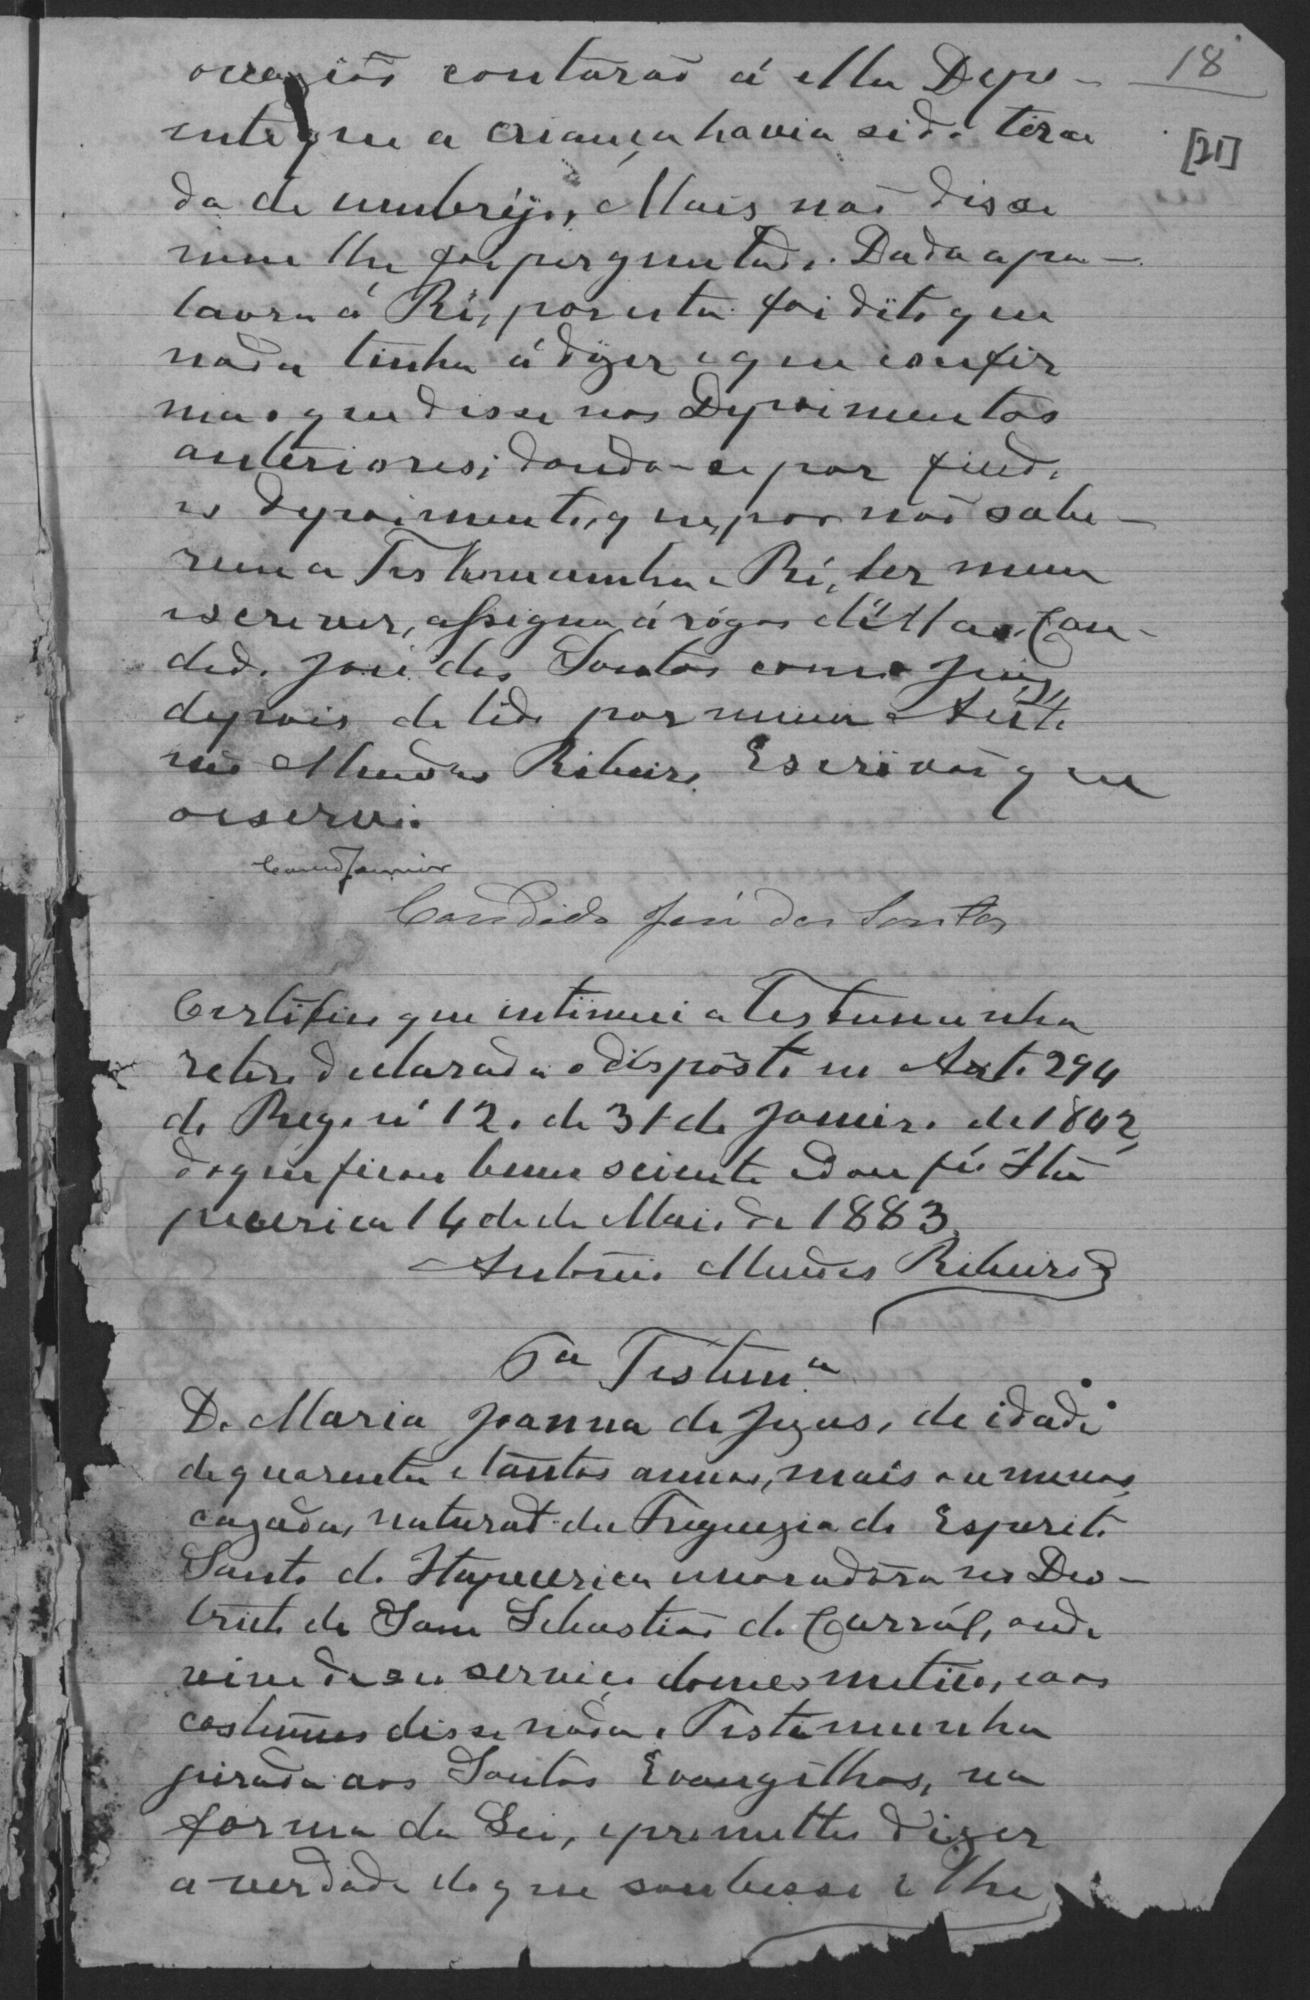 18
[21]
occazião contarão á ella Depo-
ente que a criança havia sido tira
da de um brejo, Mais não disse
nem lhe foi perguntado. Dada a pa-
lavra á Ré, por esta foi dito que
nada tinha á dizer e que confir
ma o que disse nos Depoimentos
anteriores; dando-se por findo
es depoimento, que, por não sabe-
rem a Testemunha e Ré, ler nem
escrever, assigna á rógo d'ellas Can-
dido José dos Santos com o Juiz,
depois de lido por mim Anto
nio Mendes Ribeiro Escrivão que
o escrevi.
Candido José dos Santos
Certifico que intimei a Testemunha
retro declarada o disposto no Art. 294
do Reg. nº 12. de 31 de Janeiro de 1842,
do que ficou bem sciente e dou fé Ita
pecerica 14 de de Maio de 1883
Antonio Mendes Ribeiro
6ª Testemª
D. Maria Joanna de Jezus, de idade
de quarenta e tantos annos, mais ou menos,
cazada, natural da Freguezia do Esperito
Santo de Itapecerica moradora no Des-
tricto de Sam Sebastião do Curral, onde
vive de seu serviço domesmetico, e aos
costumes disse nada. Testemunha
jurada aos Santos Evangelhos, na
forma da Lei, e prometteu dizer
a verdade do que soubesse e lhe